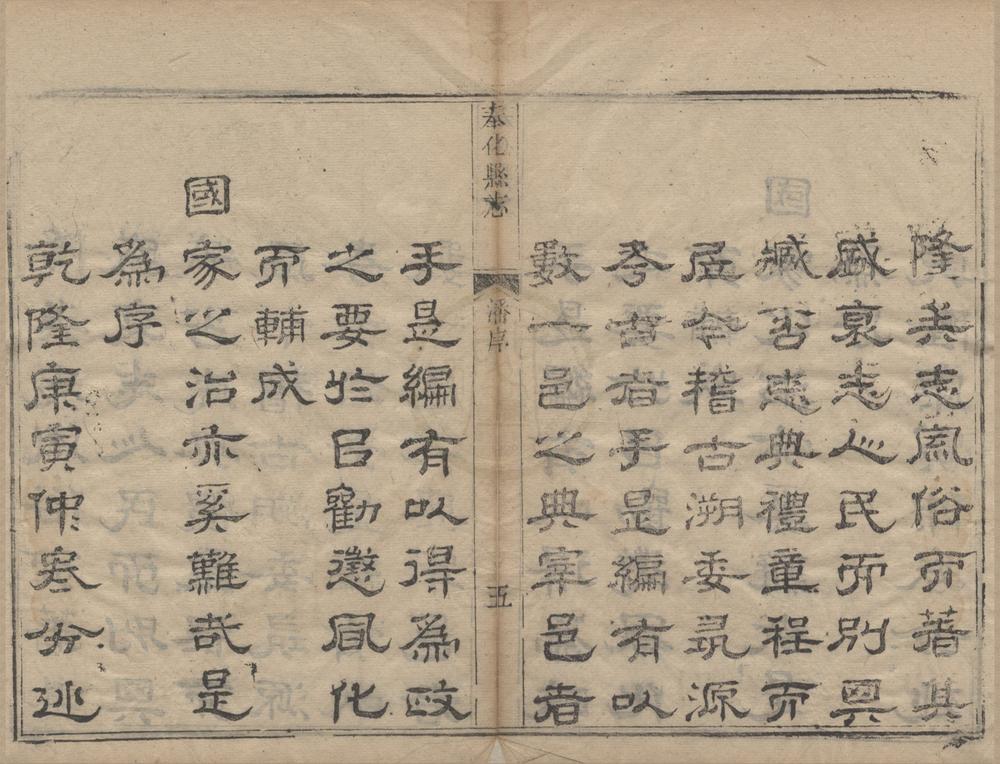 隆美志風俗而著其
盛衰志人民而別其
臧否志典禮章程而
居今稽古溯委尋源
考古者手是編有以
數一邑之典宰邑者
奉化縣志 潘序 五
手是編有以得為政
之要於㠯勸懲風化
而輔成
國家之治亦奚難哉是
為序
乾隆庚寅仲寒分巡